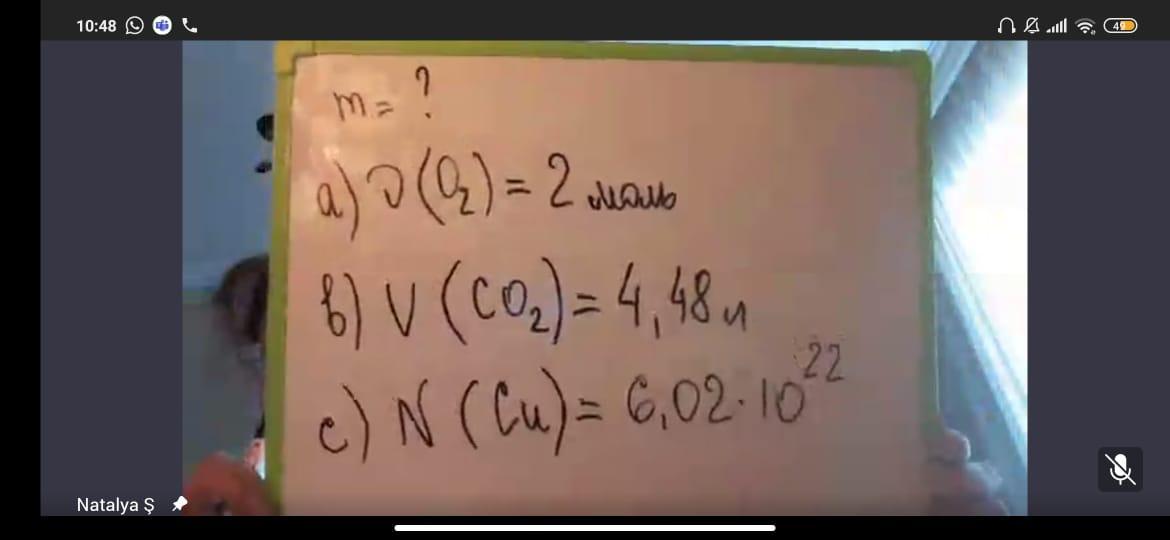 10:48
49
m = ?
a) ν(O₂) = 2 моль
b) V (CO₂) = 4,48 л
c) N (Cu) = 6,02·10²²
Natalya Ş